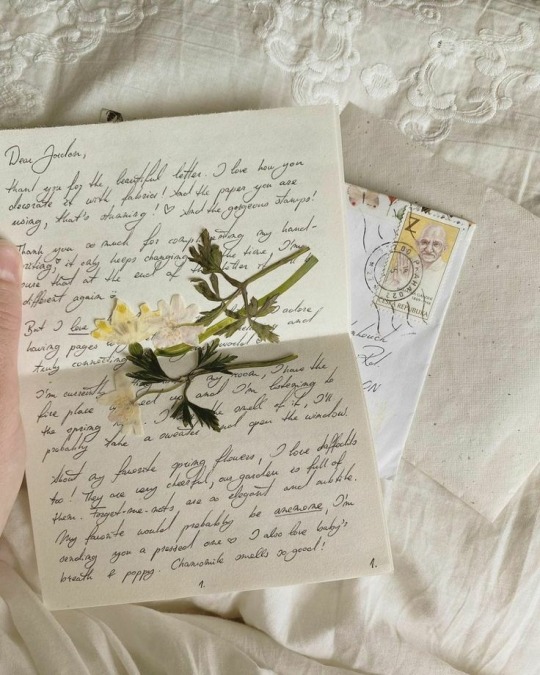 Dear Jordan,
thank you for the beautiful letter. I love how you
decorate it with fabrics! And the paper you are
using, that's stunning! ♡ And the gorgeous stamps!
Thank you so much for my hand-
writing, it only keeps changing the time I'm
sure that at the end of the letter
different again
But I love
having pages and
truly connecting
I'm currently my room, I have the
fire place and I'm listening to
the spring the smell of it, I'll
probably take a sweater and open the window.
About my favorite spring flowers, I love daffodils
too! They are very cheerful, our garden is full of
them. Forget-me-nots, are so elegant and subtle.
My favorite would probably be anemone, I'm
sending you a pressed one ♡ I also love baby's
breath & poppy. Chamomile smells so good!
1.
1.
Z
REPUBLIKA